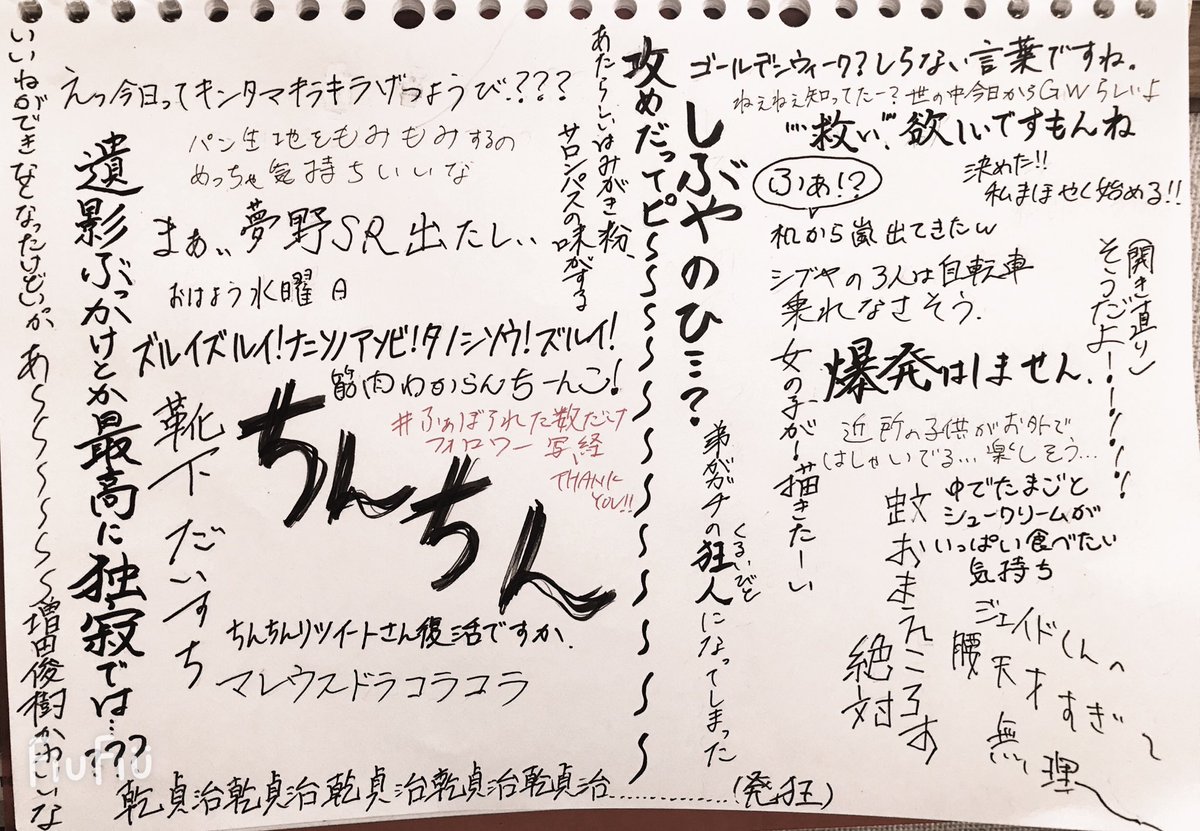 ゴールデンウィーク?しらない言葉ですね。
ねぇねぇ知ってたー?世の中今日からGWらしいよ
"救い"欲しいですもんね
決めた!!
私まほやく始める!!
ふぁ!?
机から嵐出てきたw
シブヤの3人は自転車
乗れなさそう.
(開き直り)
そうだよー!!!!!!
爆発はしません.
女の子が描きたーい
近所の子供がお外で
はしゃいでる…楽しそう…
中でたまごと
シュークリームが
いっぱい食べたい
気持ち
蚊おまえころす
絶対
ジェイドくんの
腰天才すぎ
無理
しぶやのひ…?
弟がガチの狂人になってしまった
くるいびと
攻めだってピ〜〜〜〜〜〜〜〜〜〜〜〜
あたらしいはみがき粉、
サロンパスの味がする
えっ今日ってキンタマキラキラげつようび???
パン生地をもみもみするの
めっちゃ気持ちいいな
まぁ、夢野SR出たしぃ
おはよう水曜日
ズルイズルイ!ナニソノアソビ!タノシソウ!ズルイ!
筋肉わからんちーんこ!
#ふぁぼられた数だけ
フォロワー写経
THANK
YOU!!
ちんちん
靴下だいすち
ちんちんリツイートさん復活ですか.
マレウスドラコラコラ
遺影ぶっかけとか最高に独寂では…???
あ〜〜〜〜〜〜〜増田俊樹かわいいな
乾貞治乾貞治乾貞治乾貞治乾貞治………(発狂)
FiuFiu